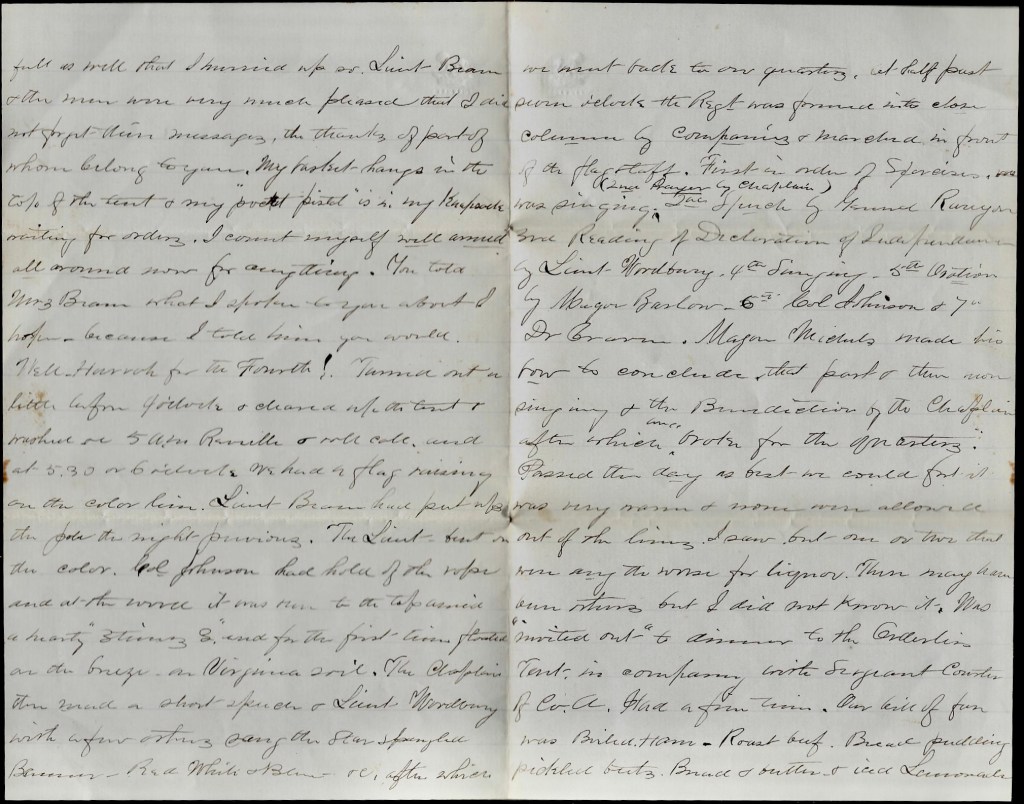 full as well that I hurried up so. Lieut Beam
& the men were very much pleased that I did
not forget their messages, the thanks of part of
whom belong to you. My basket hangs in the
top of the tent & my "pocket pistol" is in my Knapsack
waiting for orders. I count myself well armed
all around now for anything. You told
Mrs Beam what I spoke to you about I
hope - because I told him you would.
Well Hurrah for the Fourth! Turned out a
little before 4 o'clock & cleared up the tent &
washed &c 5 A.M. Reveille & roll call, and
at 5.30 or 6 o'clock we had a flag raising
on the color line. Lieut Beam had put up
the pole the night previous. The Lieut bent on
the color. Col Johnson had hold of the rope
and at the word it was run to the top amid
a hearty "3 times 3." and for the first time floated
on the breeze on Virginia soil. The Chaplain
then made a short speech & Lieut Wordbury
with a few others sang the Star Spangled
Banner - Red White & Blue - &c, after which
we went back to our quarters. At half past
seven o'clock the Regt was formed into close
column by Companies & marched in front
of the flag staff. First in order of Exercises.
(2nd Prayer by Chaplain)
was singing. Speech by General Runyon
3rd Reading of Declaration of Independence
by Lieut Wordbury. 4th Singing - 5th Oration
by Major Barlow - 6th Col Johnson & 7th
Dr Craven. Major Michels made his
bow to conclude that part & then more
singing & the Benediction by the Chaplain
after which broke for the quarters.
Passed the day as best we could for it
was very warm & none were allowed
out of the lines. I saw but one or two that
were any the worse for liquor. There may have
been others but I did not know it. Was
"invited out" to dinner to the Orderlies
Tent in company with Sergeant
of Co. A. Had a fine time. Our bill of fare
was Boiled Ham - Roast beef. Bread pudding
pickled beets. Bread & butter & iced Lemonade